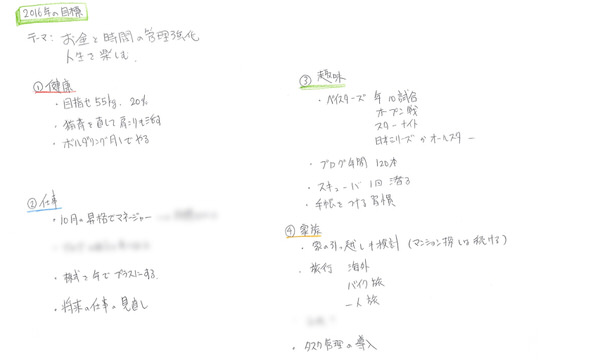 2016年の目標
テーマ: お金と時間の管理強化
人生を楽しむ
① 健康
・目指せ55kg. 20%
・猫背を直して肩こりも
・ボルダリング月1でやる
② 仕事
・10月の昇格でマネージャー
・株式を年でプラスにする
・将来の仕事の見直し
③ 趣味
・ベイスターズ 年10試合
オープン戦
スターナイト
日本シリーズかオールスター
・ブログ年間 120本
・スキューバ 1回潜る
・手帳をつける習慣
④ 家族
・家の引っ越しも検討 (マンション探しは続ける)
・旅行 海外
バイク旅
一人旅
・タスク管理の導入